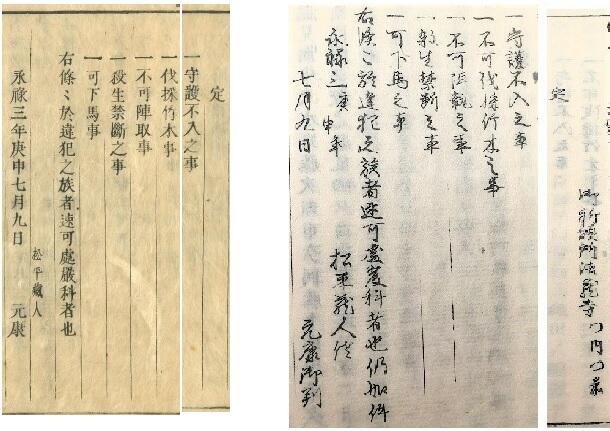 定
一守護不入之事
一不可伐採竹木之事
一殺生禁断之事
一可下馬之事
右條〻於違犯之族者速可處嚴科者也仍如件
永禄三庚申年
松平蔵人佐
七月九日
元康御判
定
一守護不入之事
一伐採竹木事
一不可陣取事
一殺生禁斷之事
一可下馬事
右條〻於違犯之族者速可處嚴科者也
松平藏人
永祿三年庚申七月九日 元康